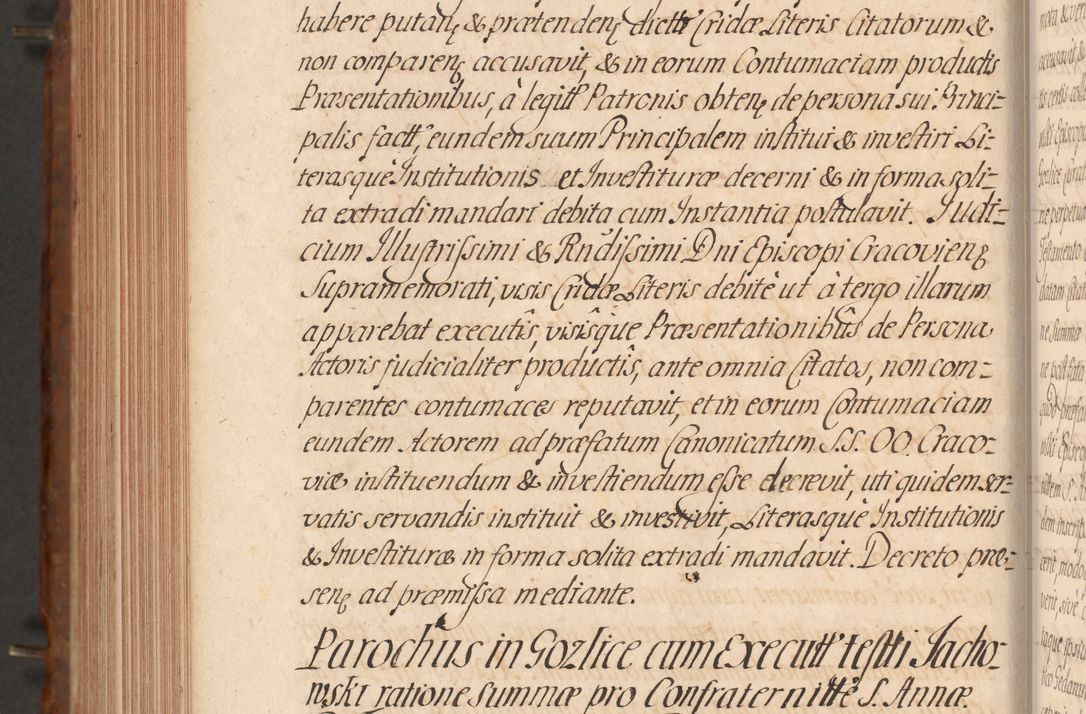 habere putanʒ & prætendenʒ dictæ Cridæ Literis Citatorum &
non comparenʒ accusavit, & in eorum Contumaciam productis
Præsentationibus, à legitt Patronis obtenʒ de persona sui Princi-
palis factt, eundem suum Principalem institui & investiri Li-
terasquè Institutionis et Investituræ decerni & in forma soli-
ta extradi mandari debita cum Instantia postulavit. Judi-
cium Illustrissimi & Rndissimi Dni Episcopi Cracovienʒ
Supramemorati, visis Cridæ Literis debitè ut à tergo illarum
apparebat executîs, visîsque Præsentationibûs de Persona
Actoris judicialiter productîs, ante omnia Citatos, non com-
parentes contumaces reputavit, et in eorum Contumaciam
eundem Actorem ad præfatum Canonicatum S.S. OO. Craco-
viæ instituendum & investiendum esse decrevit, uti quidem ser-
vatis servandis instituit & investivit, Literasquè Institutionis
& Investituræ in forma solita extradi mandavit. Decreto præ-
senʒ ad præmissa mediante.
Parochus in Gozlice cum Executt testti Jacho-
wski ratione Summæ pro Confraternittè S. Annæ.